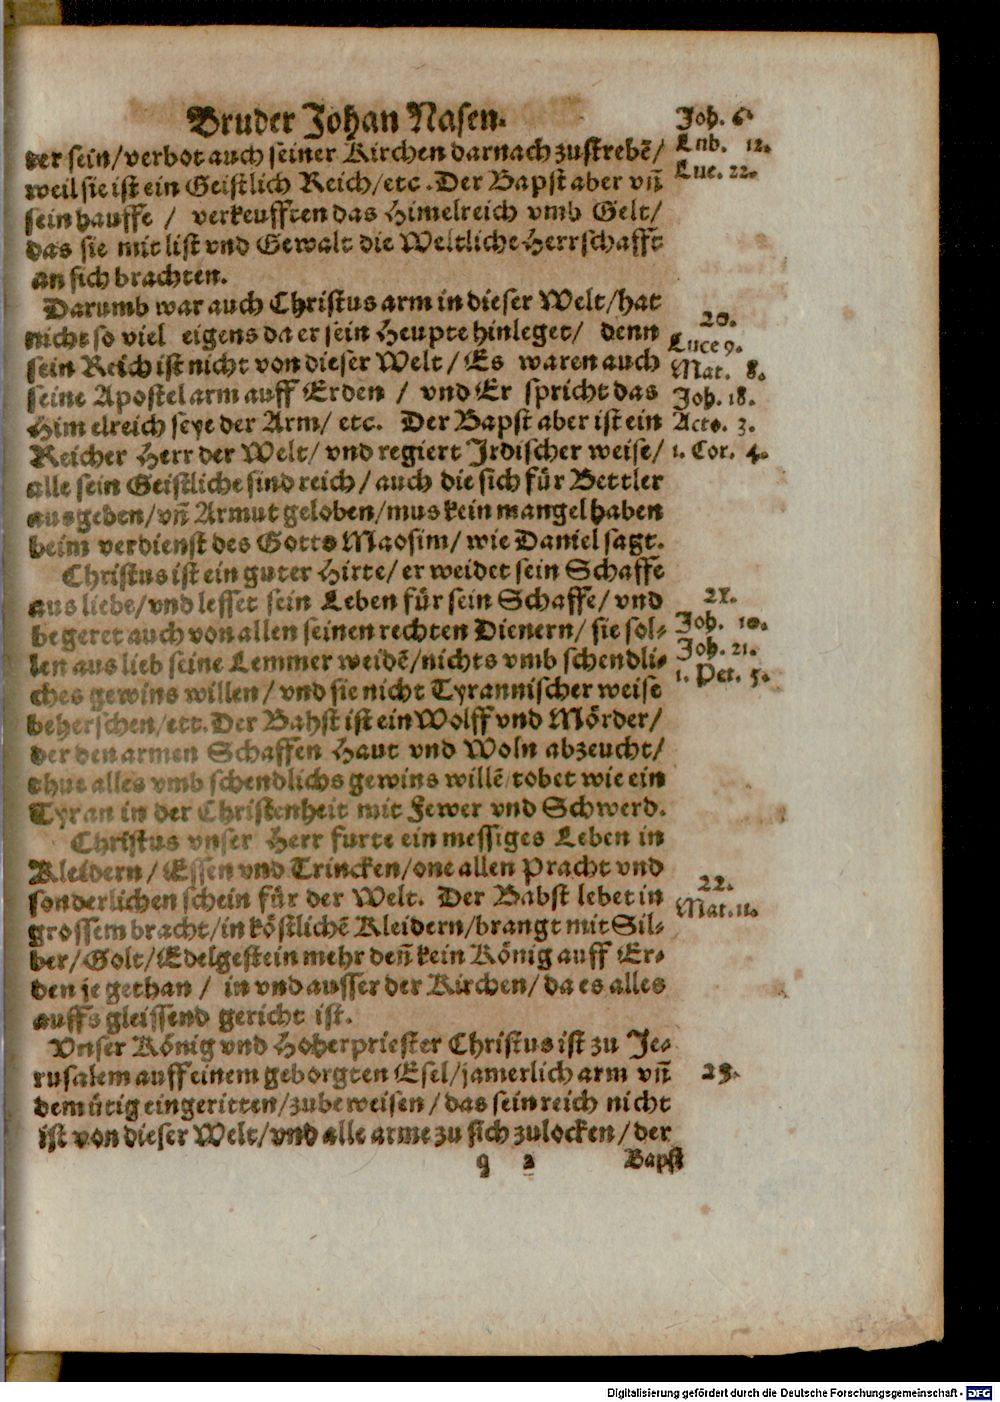 Bruder Johan Nasen.
ter sein/verbot auch seiner Kirchen darnach zustrebē/
Joh. 6.
Lub. 12.
weil sie ist ein Geistlich Reich/etc. Der Bapst aber vñ
Luc. 22.
sein hauffe / verkeufften das Himelreich vmb Gelt/
das sie mit list vnd Gewalt die Weltliche Herrschafft
an sich brachten.
Darumb war auch Christus arm in dieser Welt/hat
nicht so viel eigens da er sein Heupte hinleget/ denn
20.
Luce 9.
sein Reich ist nicht von dieser Welt / Es waren auch
Mat. 8.
seine Apostel arm auff Erden / vnd Er spricht das
Joh. 18.
Him elreich seye der Arm/ etc. Der Bapst aber ist ein
Acto. 3.
Reicher Herr der Welt/ vnd regiert Jrdischer weise/
1. Cor. 4.
alle sein Geistliche sind reich / auch die sich für Bettler
ausgeben/vñ Armut geloben/mus kein mangel haben
beim verdienst des Gotts Maosim/ wie Daniel sagt.
Christus ist ein guter Hirte/ er weidet sein Schaffe
aus liebe/vnd lesset sein Leben für sein Schaffe/ vnd
21.
begeret auch von allen seinen rechten Dienern/ sie sol-
Joh. 10.
len aus lieb seine Lemmer weidē/nichts vmb schendli-
Joh. 21.
ches gewins willen / vnd sie nicht Tyrannischer weise
1. Pet. 5.
beherschen/etc. Der Bahst ist ein Wolff vnd Mörder/
der den armen Schaffen Haut vnd Woln abzeucht/
thut alles vmb schendlichs gewins willē tobet wie ein
Tyran in der Christenheit mit Fewer vnd Schwerd.
Christus vnser Herr furte ein messiges Leben in
Kleidern / Essen vnd Trincken/one allen Pracht vnd
sonderlichen schein für der Welt. Der Babst lebet in
22.
Mat. 11.
grossem bracht/in köstlichē Kleidern/brangt mit Sil-
ber/Golt/Edelgestein mehr deñ kein König auff Er-
den je gethan / in vnd ausser der Kirchen/ da es alles
auffs gleissend gericht ist.
Vnser König vnd Hoherpriester Christus ist zu Je-
rusalem auff einem geborgten Esel/jamerlich arm vñ
23.
demütig eingeritten/zubeweisen / das sein reich nicht
ist von dieser Welt/vnd alle arme zu sich zulocken / der
g 2 Bapst
Digitalisierung gefördert durch die Deutsche Forschungsgemeinschaft - DFG